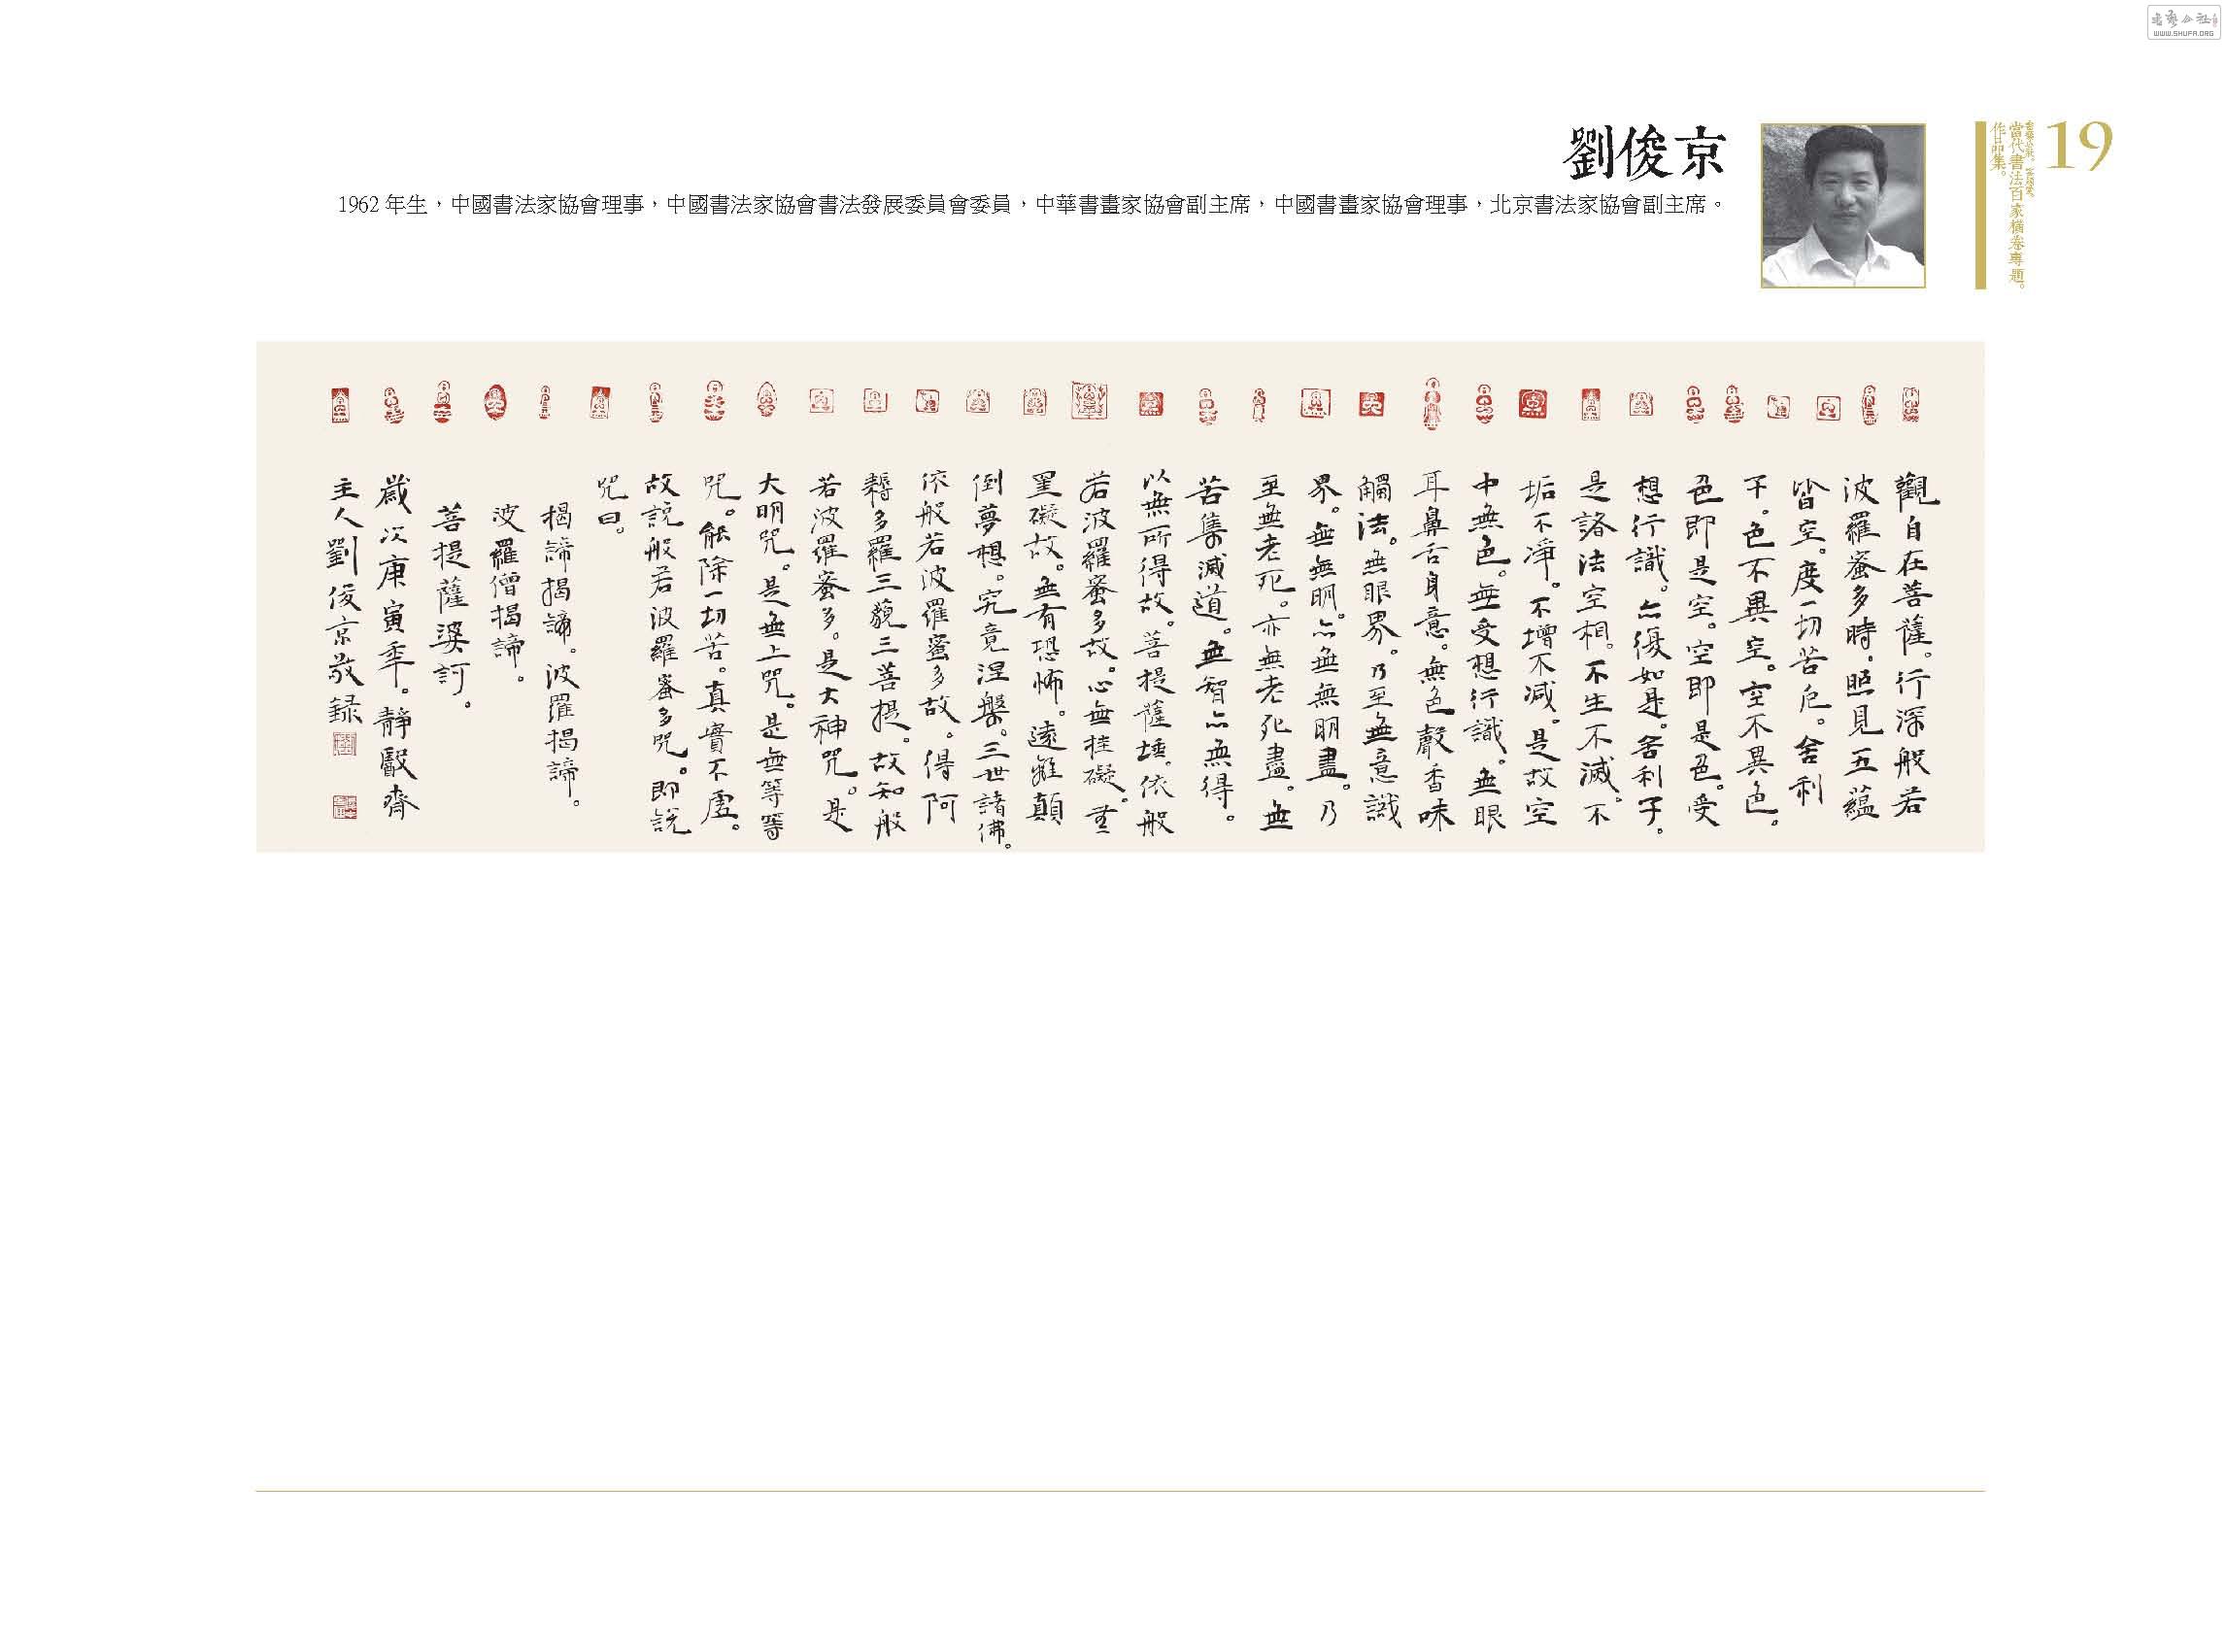 WWW.SHUFA.ORG
19
當代書法百家橫卷專題。
作品集。
劉俊京
1962年生，中國書法家協會理事，中國書法家協會書法發展委員會委員，中華書畫家協會副主席，中國書畫家協會理事，北京書法家協會副主席。
觀自在菩薩。行深般若
波羅蜜多時。照見五蘊
皆空。度一切苦厄。舍利
子。色不異空。空不異色。
色即是空。空即是色。受
想行識。亦復如是。舍利子。
是諸法空相。不生不滅。不
垢不淨。不增不減。是故空
中無色。無受想行識。無眼
耳鼻舌身意。無色聲香味
觸法。無眼界。乃至無意識
界。無無明。亦無無明盡。乃
至無老死。亦無老死盡。無
苦集滅道。無智亦無得。
以無所得故。菩提薩埵。依般
若波羅蜜多故。心無挂礙。無
罣礙故。無有恐怖。遠離顛
倒夢想。究竟涅槃。三世諸佛。
依般若波羅蜜多故。得阿
耨多羅三藐三菩提。故知般
若波羅蜜多。是大神咒。是
大明咒。是無上咒。是無等等
咒。能除一切苦。真實不虛。
故說般若波羅蜜多咒。即說
咒曰。
揭諦揭諦。波羅揭諦。
波羅僧揭諦。
菩提薩婆訶。
歲次庚寅年。靜毉齋
主人劉俊京敬録